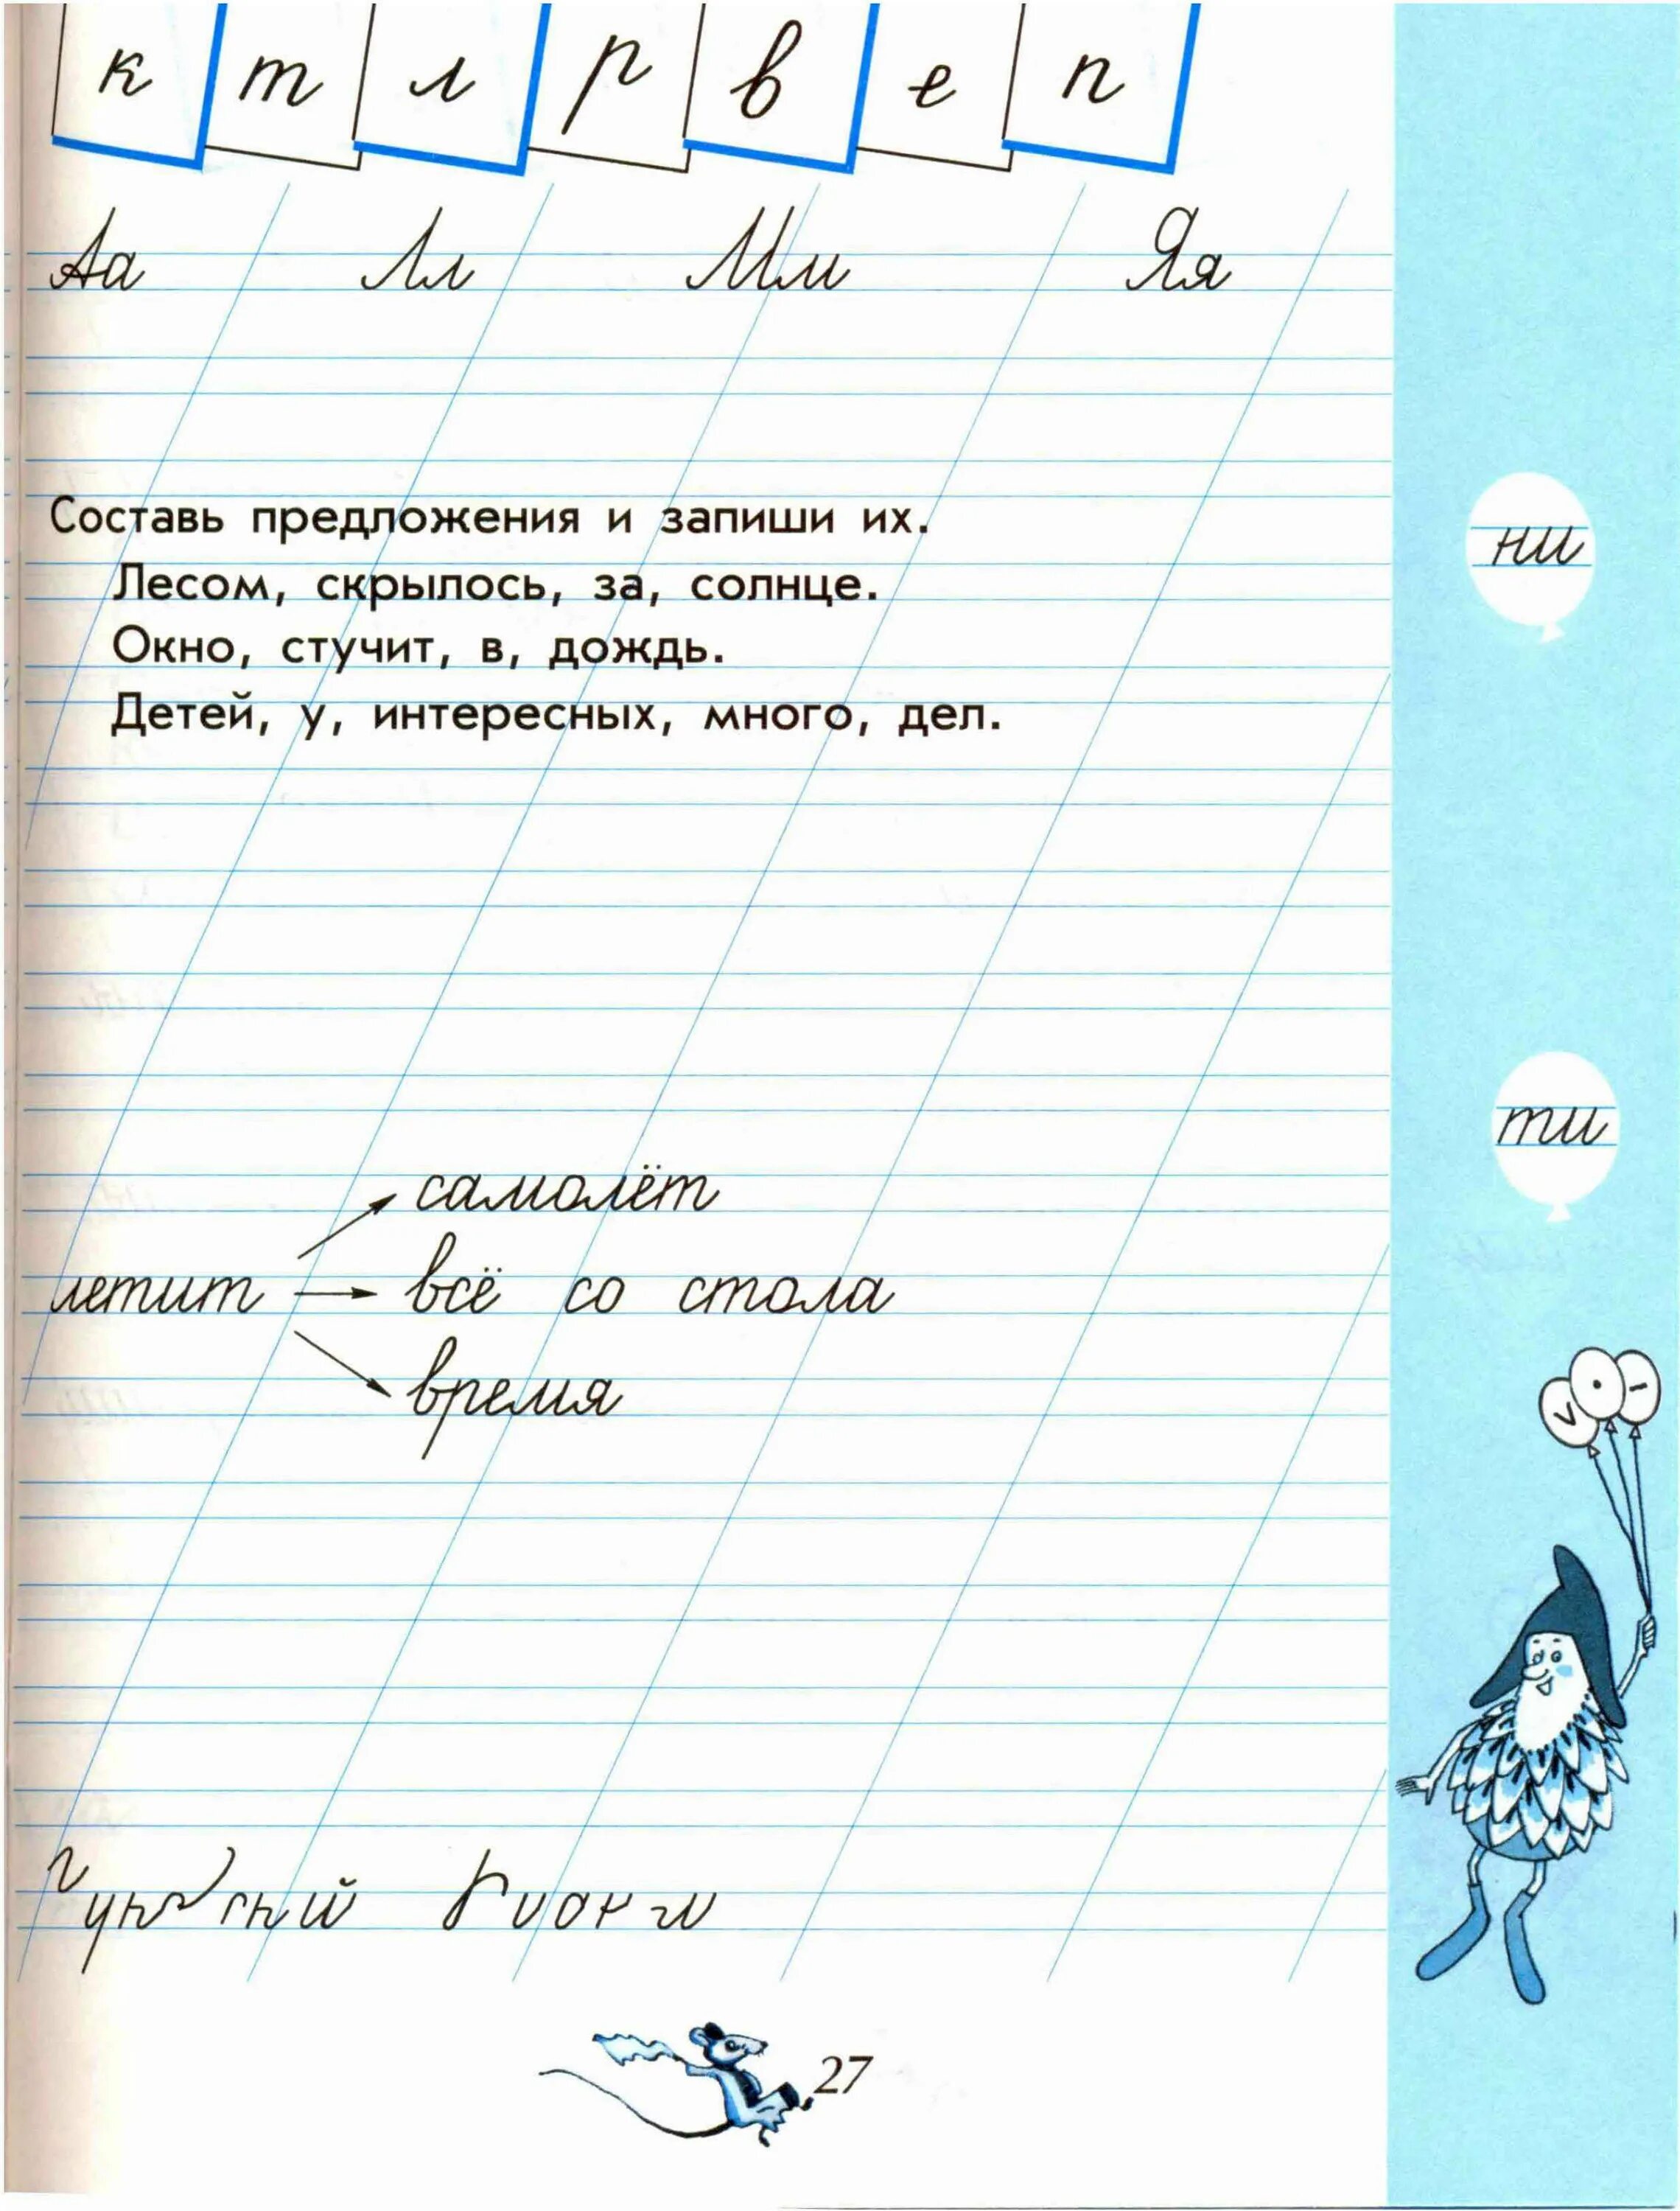 к т л р в е п
Аа Лл Мм Яя
Составь предложения и запиши их.
Лесом, скрылось, за, солнце.
ни
Окно, стучит, в, дождь.
Детей, у, интересных, много, дел.
ти
самолёт
летит всё со стола
время
27